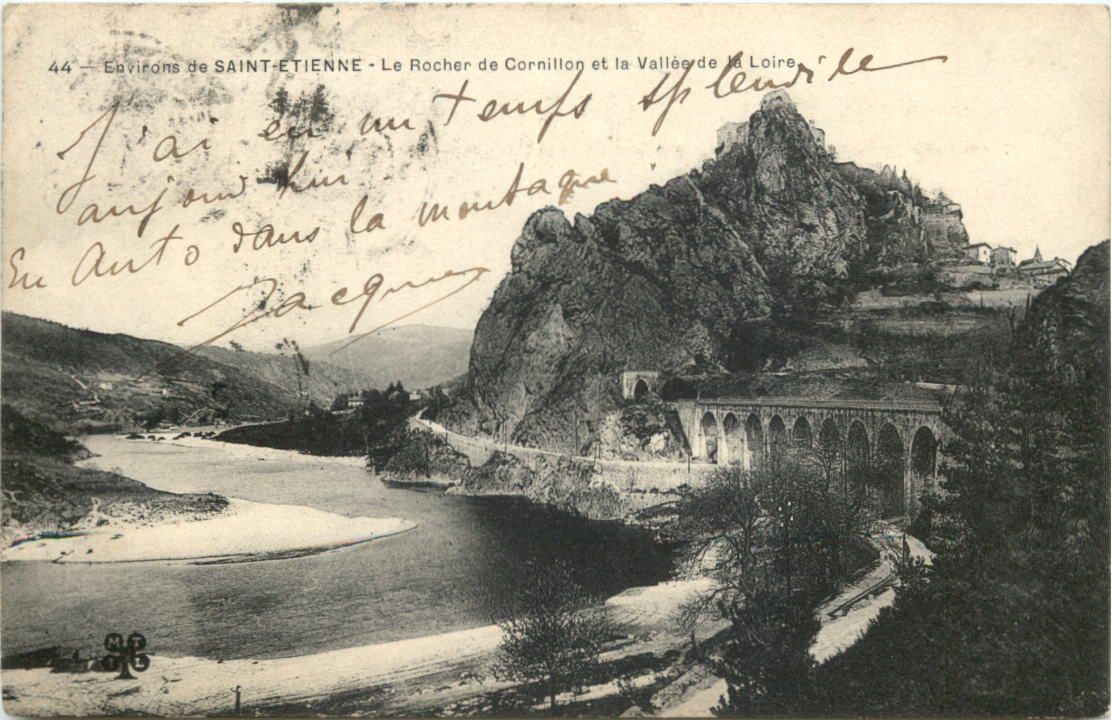 44 - Environs de SAINT-ETIENNE - Le Rocher de Cornillon et la Vallée de la Loire
J'ai eu un temps splendile
aujourd'hui
En Auto dans la montagne.
Jacques
MTIL